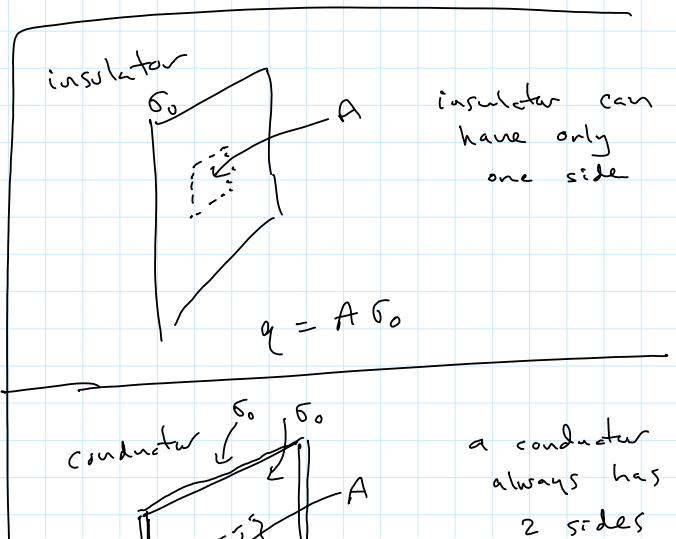 insulator
σ₀
A
insulator can
have only
one side
q = A σ₀
conductor
σ₀ σ₀
A
a conductor
always has
2 sides